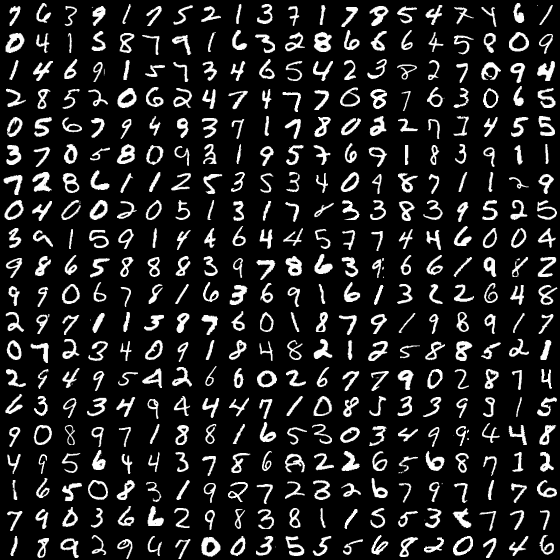 7 6 3 9 1 7 5 2 1 3 7 1 7 8 5 4 7 4 6 1
0 4 1 5 8 7 9 1 6 3 2 8 6 6 6 4 5 8 0 9
1 4 6 9 1 5 7 3 4 6 5 4 2 3 8 2 7 0 9 4
2 8 5 2 0 6 2 4 7 4 7 7 0 8 7 6 3 0 6 5
0 5 6 7 9 4 9 3 7 1 1 8 0 2 2 7 1 4 5 5
3 7 0 5 8 0 9 2 1 9 5 7 6 9 1 8 3 9 1 1
7 2 8 6 1 1 2 5 3 5 3 4 0 9 8 7 1 1 2 9
0 4 0 0 2 0 5 1 3 1 7 8 3 3 8 3 9 5 2 5
3 9 1 5 9 1 4 4 6 4 4 5 7 7 4 4 6 0 0 4
9 8 6 5 8 8 8 3 9 7 8 6 3 9 6 6 1 9 8 2
9 9 0 6 7 8 1 6 3 6 9 1 6 1 3 2 2 6 4 8
2 9 7 1 1 3 8 7 6 0 1 8 7 9 1 9 8 9 1 7
0 7 2 3 4 0 9 1 8 4 8 2 1 2 5 8 8 5 2 1
2 9 4 9 5 4 2 6 6 0 2 6 7 7 9 0 2 8 7 4
6 3 9 3 4 9 4 4 4 7 1 0 8 5 3 3 9 3 1 5
9 0 8 9 7 1 8 8 1 6 5 3 0 3 4 9 9 4 4 8
4 9 5 6 4 4 3 7 8 6 8 2 2 6 5 6 8 7 1 2
1 6 5 0 8 3 1 9 2 7 2 3 2 6 7 9 7 1 7 6
7 9 0 3 6 6 2 9 8 3 8 1 1 5 5 3 8 7 7 7
1 8 9 2 9 4 7 0 0 3 5 5 5 6 8 2 0 7 4 6